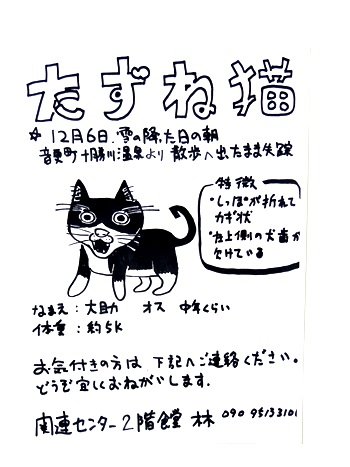 たずね猫
☆ 12月6日、雪の降った日の朝
音更町十勝川温泉より 散歩へ出たまま失踪
特徴
・しっぽが折れて
カギ状
・左上側の犬歯が
欠けている
なまえ：大助 オス 中年くらい
体重：約5K
お気付きの方は 下記へご連絡ください。
どうぞ宜しくおねがいします。
関連センター2階食堂 林 090 95133101